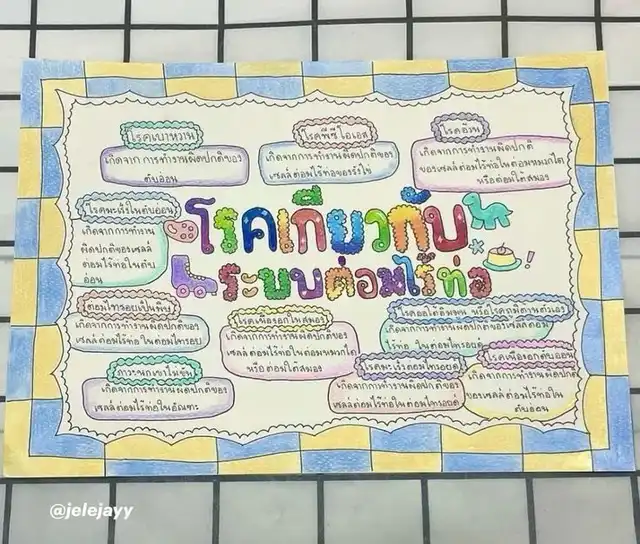 โรคเบาหวาน
เกิดจาก การทำงานผิดปกติของ
ตับอ่อน
โรคพีซีโอเอส
เกิดจากการทำงานผิดปกติของ
เซลล์ต่อมไร้ท่อของรังไข่
โรคอ้วน
เกิดจากการทำงานผิดปกติ
ของเซลล์ต่อมไร้ท่อในต่อมหมวกไต
หรือต่อมใต้สมอง
โรคมะเร็งในตับอ่อน
เกิดจากการทำงาน
ผิดปกติของเซลล์
ต่อมไร้ท่อในตับ
อ่อน
โรคเกี่ยวกับ
ระบบต่อมไร้ท่อ
ต่อมไทรอยด์เป็นพิษ
เกิดจากการทำงานผิดปกติของ
เซลล์ต่อมไร้ท่อในต่อมไทรอยด์
โรคเนื้องอกในสมอง
เกิดจากการทำงานผิดปกติของ
เซลล์ต่อมไร้ท่อในต่อมหมวกไต
หรือ ต่อมใต้สมอง
หรือ โรคภูมิต้านตัวเอง
เกิดจากการทำงานผิดปกติของเซลล์ต่อม
ไร้ท่อ ในต่อมไทรอยด์
โรคมะเร็งต่อมไทรอยด์
เกิดจากการทำงานผิดปกติของ
เซลล์ต่อมไร้ท่อในต่อมไทรอยด์
โรคเนื้องอกตับอ่อน
เกิดจากการทำงานผิดปกติ
ของเซลล์ต่อมไร้ท่อใน
ตับอ่อน
เกิดจากการทำงานผิดปกติของ
เซลล์ต่อมไร้ท่อในอัณฑะ
@jelejayy